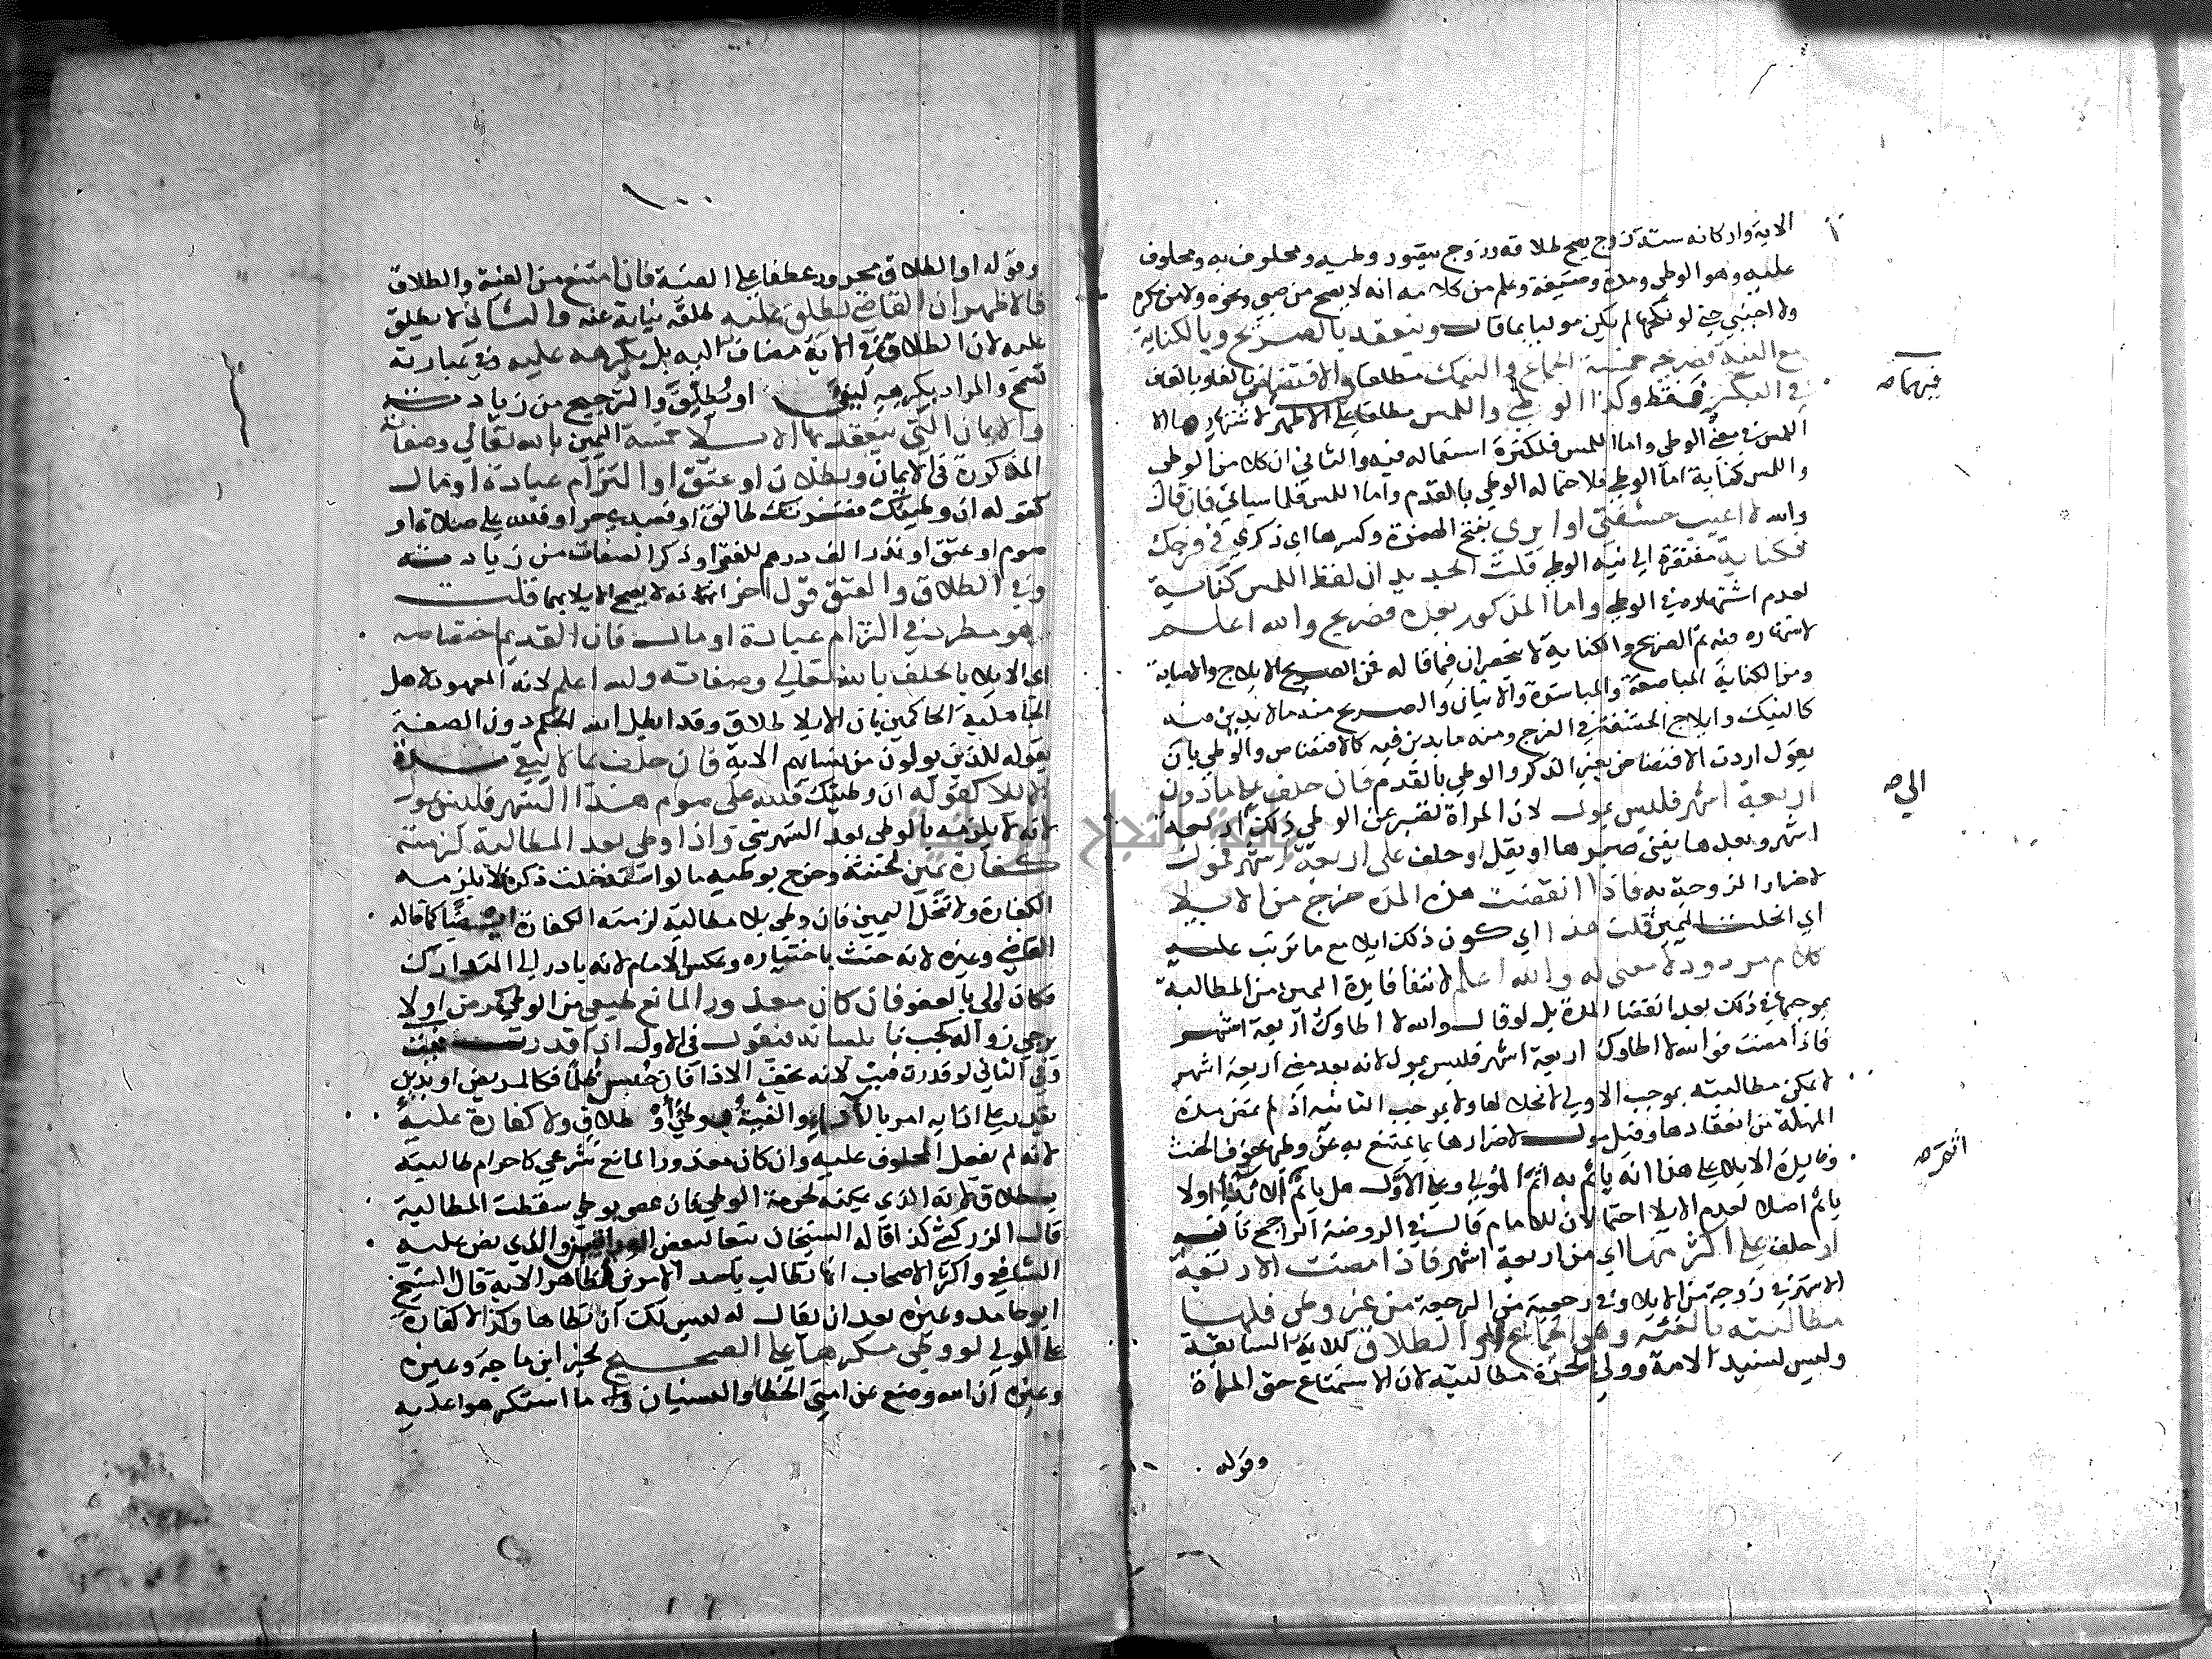 الاية واركانه ستة زوج يصح طلاقه وزوج يتصور وطيه ومحلوف به ومحلوف
عليه وهو الوطي ومدة وصيغة وعلم من كلامه انه لا يصح من صبي ونحوه ولا من مكره
ولا اجنبي حتى لو نكحها لم يكن موليا بما قال وينعقد بالصريح وبالكناية
مع النية فصريحه خمسة الجماع والنيك مطلقا والافتضاض بالفا وبالقاف
فيهما صح
في البكر فقط وكذا الوطي واللمس مطلقا على الاظهر لاشتهار
اللمس في معنى الوطي واما اللمس فلكثرة استعماله فيه والثاني ان كلا من الوطي
واللمس كناية اما الوطي فلاحتماله الوطي بالقدم واما اللمس فلما سياتي فان قال
والله لا اغيب حشفتي او ايري بفتح الهمزة وكسرها اي ذكري في فرجك
فكناية مفتقرة الى نية الوطي قلت الجديد ان لفظ اللمس كناية
لعدم اشتهاره في الوطي واما المذكور بعده فصريح والله اعلم
لاشتهاره فيه ثم الصريح والكناية لا ينحصران فيما قاله فمن الصريح الايلاج والاصابة
ومن الكناية المباضعة والمباشرة والاتيان والصريح منه ما لا يدين فيه
كالنيك وايلاج الحشفة في الفرج ومنه ما يدين فيه كالافتضاض والوطي بان
يقول اردت الافتضاض بغير الذكر والوطي بالقدم فان حلف على ما دون
الى صح
اربعة اشهر فليس بمول لان المراة تصبر عن الوطي ذلك اربعة
اشهر وبعدها يفنى صبرها او يقل او حلف على اربعة اشهر فمول
لاضرار الزوجة به فاذا انقضت هذه المدة خرج من الايلا
اي انحلت اليمين قلت هذا اي كون ذلك ايلا مع ما ترتب عليه
كلام مردود لا معنى له والله اعلم لانتفا فايدة اليمين من المطالبة
بموجبها في ذلك بعد انقضا المدة بل لو قال والله لا اطاوك اربعة اشهر
فاذا مضت فوالله لا اطاوك اربعة اشهر فليس بمول لانه بعد مضي اربعة اشهر
لا يمكن مطالبته بموجب الاولى لانحلالها ولا بموجب الثانية اذ لم تمض مدة
المهلة من انعقادها وقيل مول لاضرارها بما يمتنع به عن وطيها خوف الحنث
اثمر صح
وفايدة الايلا على هذا انه ياثم به اثم المولي وعلى الاول هل ياثم اولا
ياثم اصلا لعدم الايلا احتمالان للامام قال في الروضة الراجح تاثيمه
او حلف على اكثر منها اي من اربعة اشهر فاذا مضت الاربعة
الاشهر في زوجة من الايلا وفي رجعية من الرجعة من غير وطي فلها
مطالبته بالفئة وهي الجماع او الطلاق للاية السابقة
وليس لسيد الامة وولي الحرة مطالبته لان الاستمتاع حق المراة
وقوله
١٠٠
وقوله او الطلاق مجرور عطفا على الفئة فان امتنع من الفئة والطلاق
فالاظهر ان القاضي يطلق عليه طلقة نيابة عنه والثاني لا يطلق
عليه لان الطلاق في الاية مضاف اليه بل يكرهه عليه وفي عبارته
تسمح والمراد يكرهه ليفئ او يطلق والترجيح من زيادته
والايمان التي ينعقد بها الايلا خمسة اليمين بالله تعالى وصفاته
المذكورة في الايمان وبطلاق او عتق او التزام عبادة او مال
كقوله ان وطيتك فضرتك طالق او فعبدي حر او فلله علي صلاة او
صوم او عتق او نذر الف درهم للفقرا وذكر الصفات من زيادته
وفي الطلاق والعتق قول اخر انه لا يصح الايلا بهما قلت
هو مطرد في التزام عبادة او مال فان القديم اختصاصه
اي الايلا بالحلف بالله تعالى وصفاته والله اعلم لانه المعهود لاهل
الجاهلية الحاكمين بان الايلا طلاق وقد ابطل الله الحكم دون الصفة
بقوله للذين يولون من نسايهم الاية فان حلف بما لا يبقى مدة
الايلا كقوله ان وطيتك فلله علي صوم هذا الشهر فليس بمول
لانه لا يلزمه بالوطي بعد الشهر شي واذا وطي بعد المطالبة لزمته
كفارة يمين لحنثه وخرج بوطيه ما لو استدخلت ذكره فلا يلزمه
الكفارة ولا تنحل اليمين فان وطي بلا مطالبة لزمته الكفارة ايضا كما قاله
القاضي وغيره لانه حنث باختياره وعكس الامام لانه بادر الى التدارك
فكان اولى بالعفو فان كان معذورا لمانع طبيعي من الوطي كمرض اولا
يرجى زواله كجب فا بلسانه فيقول في الاول اذا قدرت فئت
وفي الثاني لو قدرت فئت لانه يخفف الاذا فان حبس ظلما فكالمريض او بدين
يقدر على ادايه امر بالاداء والفئة بوطئ او طلاق ولا كفارة عليه
لانه لم يفعل المحلوف عليه وان كان معذورا لمانع شرعي كاحرام طالبته
بطلاق لانه الذي يمكنه لحرمة الوطي فان عصى بوطي سقطت المطالبة
قال الزركشي كذا قاله الشيخان تبعا لبعض المراوزة والذي نص عليه
الشافعي واكثر الاصحاب انها تطالب باحد الامرين لظاهر الاية قال الشيخ
ابو حامد وغيره بعد ان يقال له ليس لك ان تطاها وكذا لا كفارة
على المولي لو وطي مكرها على الصحيح لخبر ابن ماجة وغيره
وغيره ان الله وضع عن امتي الخطا والنسيان وما استكرهوا عليه